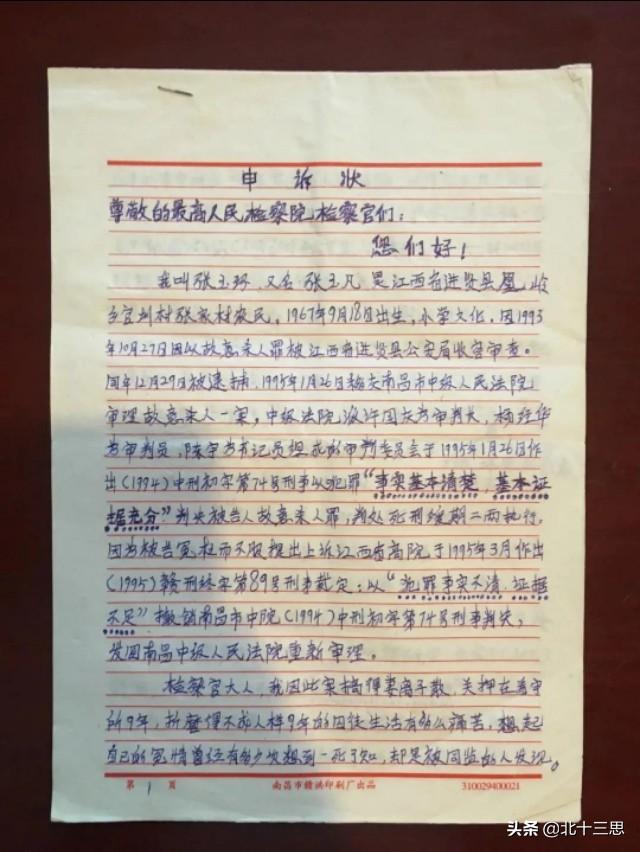 申诉状
尊敬的最高人民检察院检察官们：
您们好！
我叫张玉环，又名张玉凡是江西省进贤县凰岭
乡官圳村张家村农民。1967年9月18日出生，小学文化，因1993
年10月27日因以故意杀人罪被江西省进贤县公安局收容审查。
同年12月29日被逮捕，1995年1月26日南昌市中级人民法院
审理故意杀人一案，中级法院派许国友为审判长，杨经华
为审判员，陈宇为书记员组成的审判委员会于1995年1月26日作
出（1994）中刑初字第74号刑事以犯罪“事实基本清楚，基本证
据充分”判决被告人故意杀人罪，判处死刑缓期二两执行，
因为被告冤枉而不服提出上诉江西省高院于1995年3月作出
（1995）赣刑终字第89号刑事裁定：以“犯罪事实不清，证据
不足”撤销南昌市中院（1994）中刑初字第74号刑事判决，
发回南昌中级人民法院重新审理。
检察官大人，我因此案搞得妻离子散，关押在看守
所9年，折磨得不成人样9年的囚徒生活有多么痛苦，想起
自己的冤情曾经有多少次想到一死了知，却是被同监的人发现。
第 1 页
南昌市赣洪印刷厂出品
310029400021
头条 @北十三思